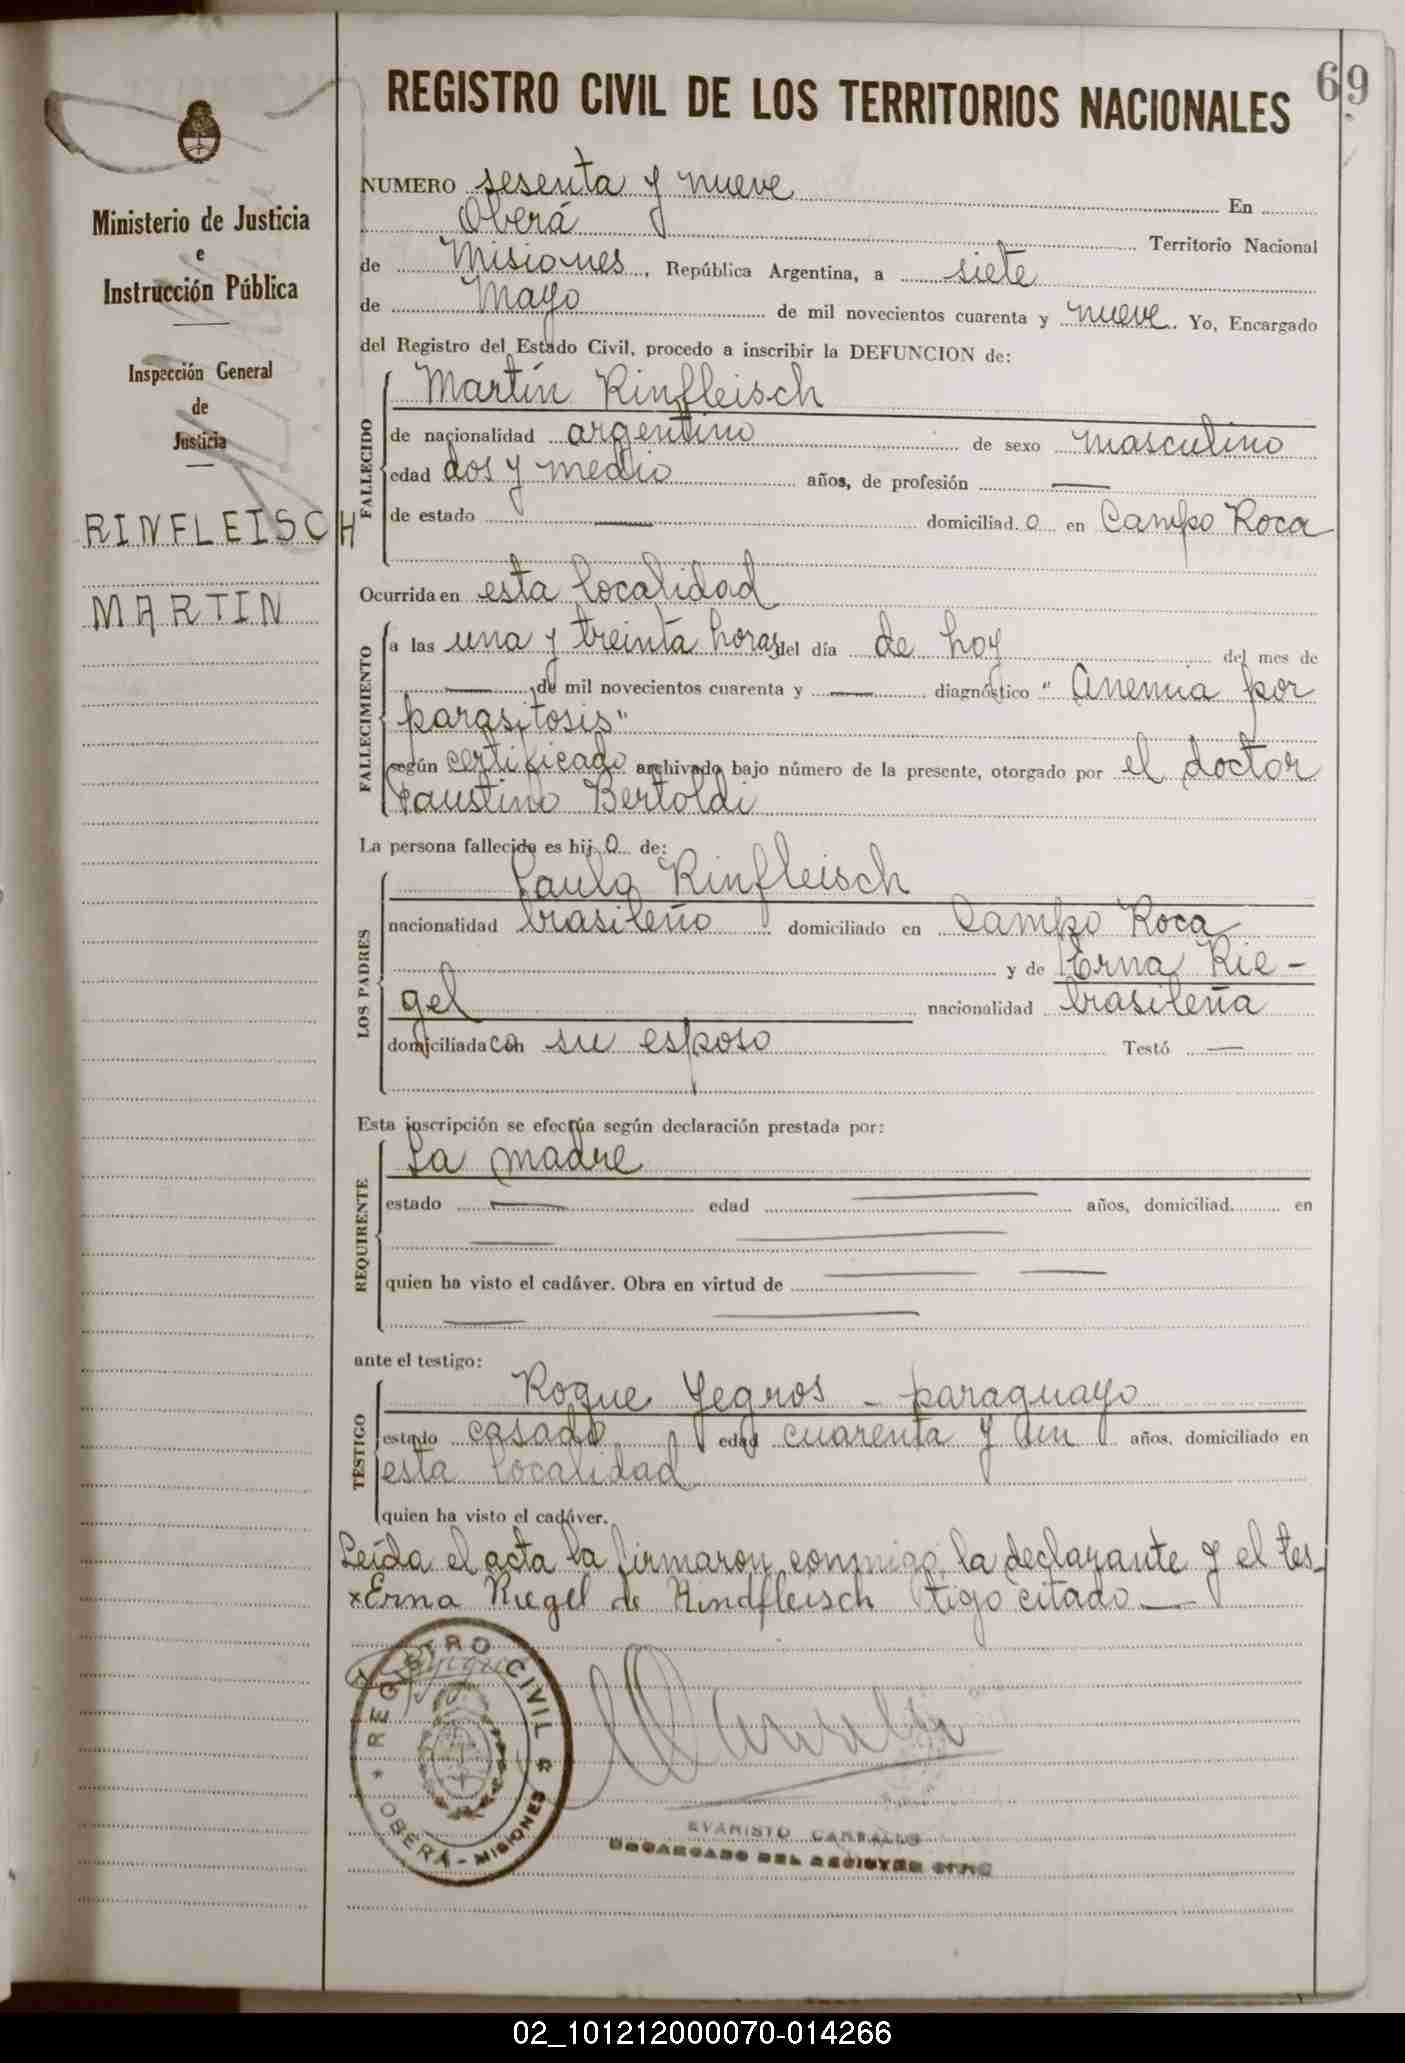 REGISTRO CIVIL DE LOS TERRITORIOS NACIONALES
69
Ministerio de Justicia
e
Instrucción Pública
Inspección General
de
Justicia
RINFLEISCH
MARTIN
NUMERO sesenta y nueve En
Oberá Territorio Nacional
de Misiones, República Argentina, a siete
de Mayo de mil novecientos cuarenta y nueve. Yo, Encargado
del Registro del Estado Civil, procedo a inscribir la DEFUNCION de:
FALLECIDO
Martín Rinfleisch
de nacionalidad argentino de sexo masculino
edad dos y medio años, de profesión —
de estado — domiciliad o en Campo Roca
Ocurrida en esta localidad
FALLECIMIENTO
a las una y treinta horas del día de hoy del mes de
— de mil novecientos cuarenta y — diagnóstico "Anemia por
parasitosis"
según certificado archivado bajo número de la presente, otorgado por el doctor
Faustino Bertoldi
La persona fallecida es hij o de:
LOS PADRES
Paulo Rinfleisch
nacionalidad brasileño domiciliado en Campo Roca
y de Erna Rie-
gel nacionalidad brasileña
domiciliada con su esposo Testó —
Esta inscripción se efectúa según declaración prestada por:
REQUIRENTE
La madre
estado — edad — años, domiciliad en
— —
quien ha visto el cadáver. Obra en virtud de — —
— —
ante el testigo:
TESTIGO
Roque Yegros - paraguayo
estado casado edad cuarenta y un años, domiciliado en
esta localidad
quien ha visto el cadáver.
Leída el acta la firmaron conmigo, la declarante y el tes-
xErna Riegel de Rindfleisch tigo citado —
REGISTRO CIVIL
OBERÁ - MISIONES
EVARISTO CARBALLO
ENCARGADO DEL REGISTRO CIVIL
02_101212000070-014266